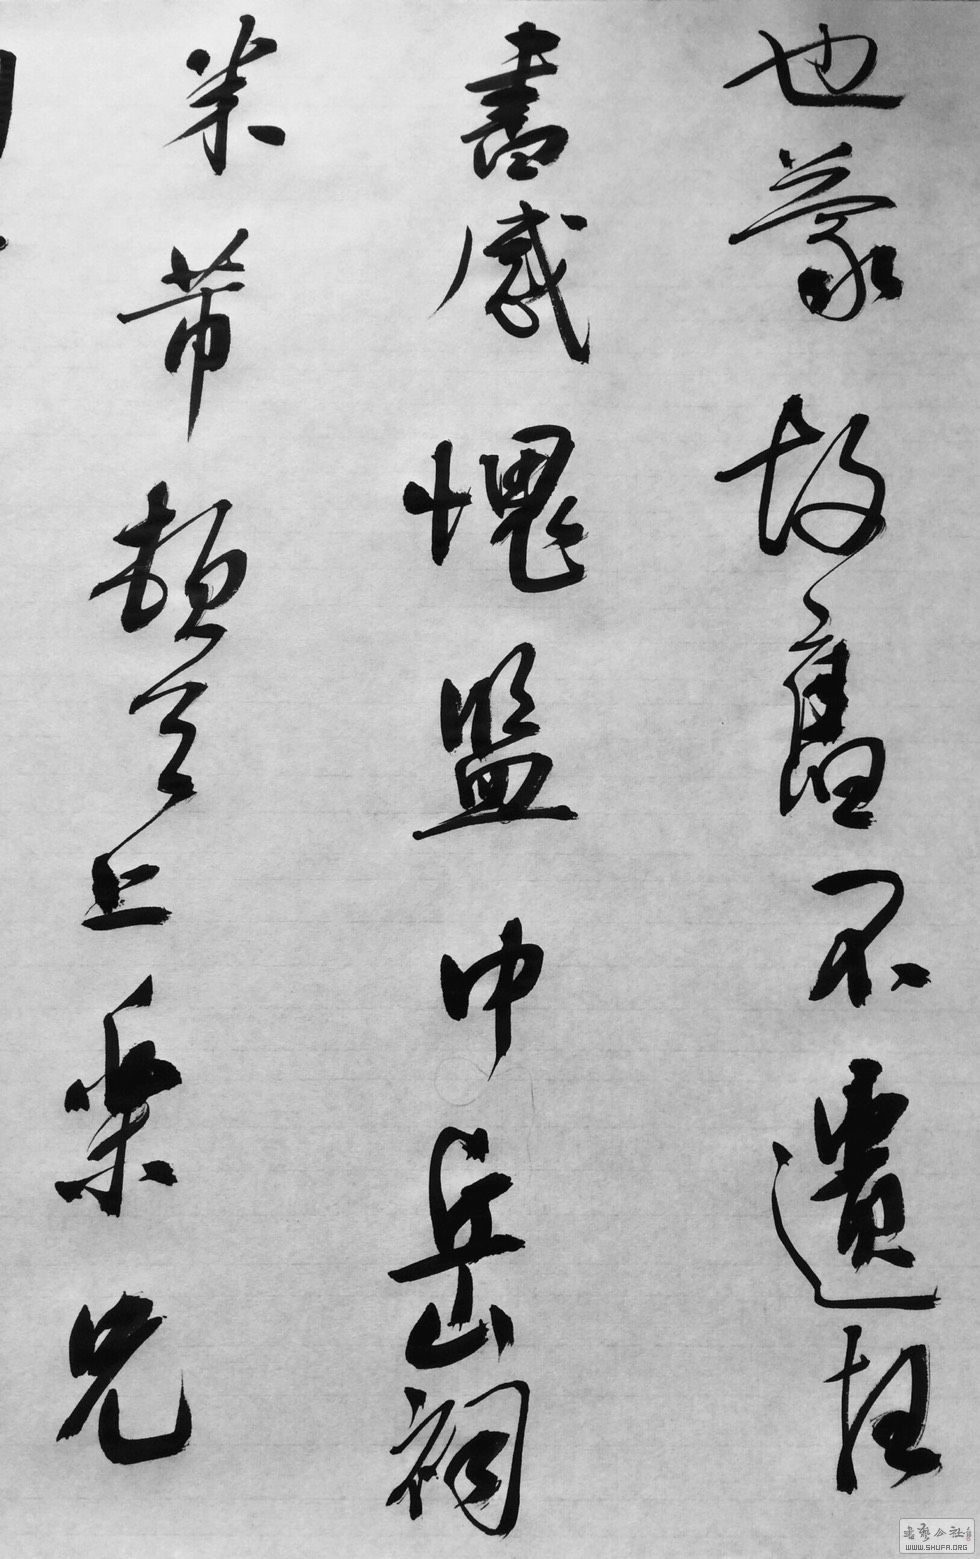 也蒙故舊不遺枉
書感愧監中岳祠
米芾頓首上樂兄
書藝公社
WWW.SHUFA.ORG